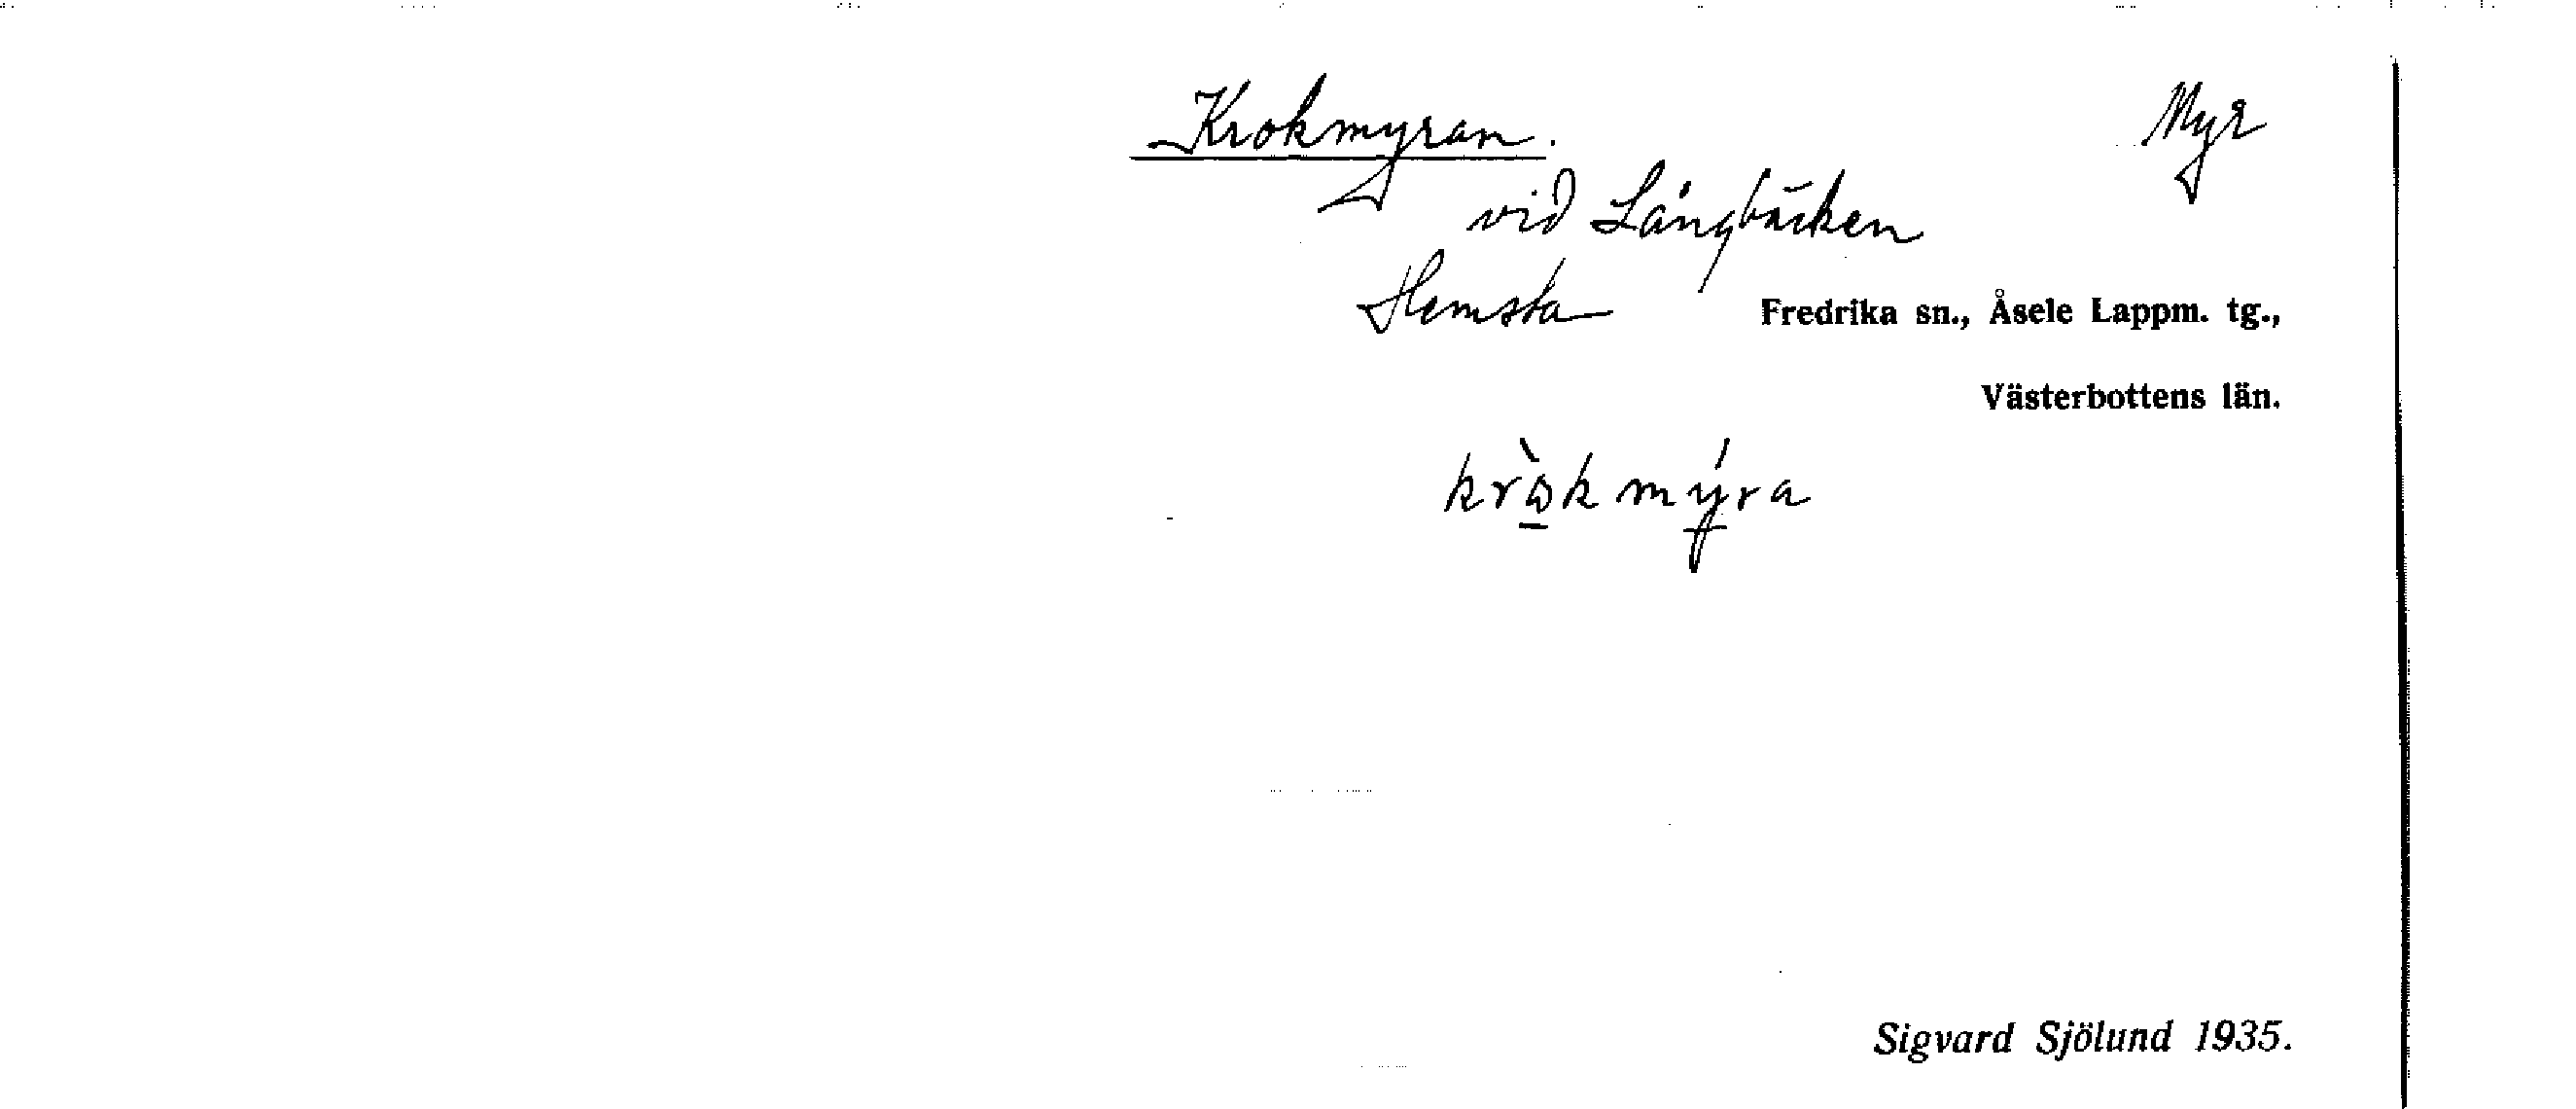 Krokmyran. Myr
vid Långbäcken
Hemsta Fredrika sn., Åsele Lappm. tg.,
Västerbottens län.
kròkmýra
Sigvard Sjölund 1935.